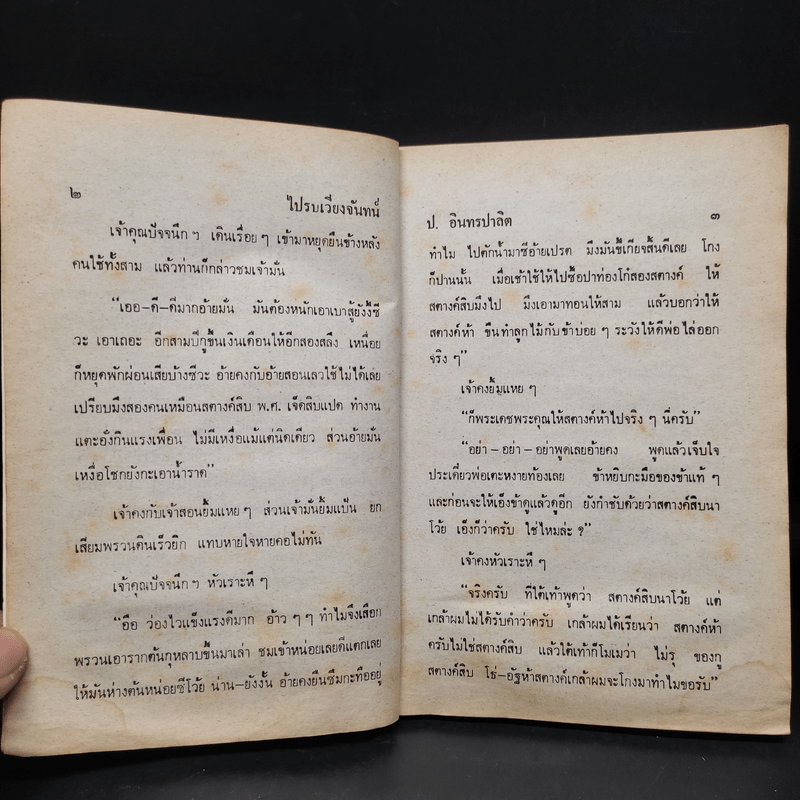 ๒
ไปรบเวียงจันทน์
เจ้าคุณปัจจนึกฯ เดินเรื่อยๆ เข้ามาหยุดยืนข้างหลัง
คนใช้ทั้งสาม แล้วท่านก็กล่าวชมเจ้ามั่น
“เออ–ดี–ดีมากอ้ายมั่น มันต้องหนักเอาเบาสู้ยังงี้ซี
วะ เอาเถอะ อีกสามปีกูขึ้นเงินเดือนให้อีกสองสลึง เหนื่อย
ก็หยุดพักผ่อนเสียบ้างซีวะ อ้ายคงกับอ้ายสอนเลวใช้ไม่ได้เลย
เปรียบมึงสองคนเหมือนสตางค์สิบ พ.ศ. เจ็ดสิบแปด ทำงาน
แตะอั๋งกินแรงเพื่อน ไม่มีเหงื่อแม้แต่นิดเดียว ส่วนอ้ายมั่น
เหงื่อโชกยังกะเอาน้ำราด”
เจ้าคงกับเจ้าสอนยิ้มแหยๆ ส่วนเจ้ามั่นยิ้มแป้น ยก
เสียมพรวนดินเร็วยิก แทบหายใจหายคอไม่ทัน
เจ้าคุณปัจจนึกฯ หัวเราะหึๆ
“อือ ว่องไวแข็งแรงดีมาก อ้าวๆๆ ทำไมจึงเสือก
พรวนเอารากต้นกุหลาบขึ้นมาเล่า ชมเข้าหน่อยเลยดีแตกเลย
ให้มันห่างต้นหน่อยซีโว้ย น่าน–ยังงั้น อ้ายคงยืนซึมกะทืออยู่
ป. อินทรปาลิต
๓
ทำไม ไปตักน้ำมาซีอ้ายเปรต มึงมันขี้เกียจสิ้นดีเลย โกง
ก็ปานนั้น เมื่อเช้าใช้ให้ไปซื้อปาท่องโก๋สองสตางค์ ให้
สตางค์สิบมึงไป มึงเอามาทอนให้สาม แล้วบอกว่าให้
สตางค์ห้า ขืนทำลูกไม้กับข้าบ่อยๆ ระวังให้ดีพ่อไล่ออก
จริงๆ”
เจ้าคงยิ้มแหยๆ
“ก็พระเดชพระคุณให้สตางค์ห้าไปจริงๆ นี่ครับ”
“อย่า – อย่า – อย่าพูดเลยอ้ายคง พูดแล้วเจ็บใจ
ประเดี๋ยวพ่อเตะหงายท้องเลย ข้าหยิบกะมือของข้าแท้ๆ
และก่อนจะให้เอ็งข้าดูแล้วดูอีก ยังกำชับด้วยว่าสตางค์สิบนา
โว้ย เอ็งก็ว่าครับ ใช่ไหมล่ะ ?”
เจ้าคงหัวเราะหึๆ
“จริงครับ ที่ใต้เท้าพูดว่า สตางค์สิบนาโว้ย แต่
เกล้าผมไม่ได้รับคำว่าครับ เกล้าผมได้เรียนว่า สตางค์ห้า
ครับไม่ใช่สตางค์สิบ แล้วใต้เท้าก็โมเมว่า ไม่รู้ ของกู
สตางค์สิบ โธ่–อัฐห้าสตางค์เกล้าผมจะโกงมาทำไมขอรับ”